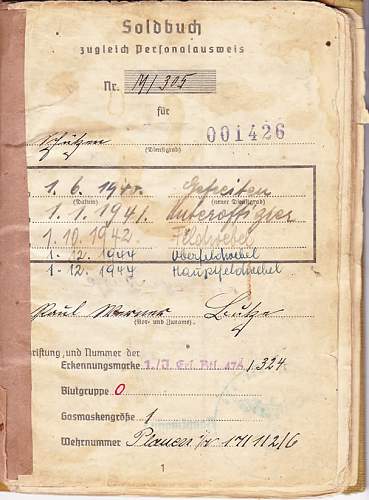 Soldbuch
zugleich Personalausweis
Nr. M/305
für
Schützen 001426
(Dienstgrad)
1. 6. 1940. Gefreiten
(Datum) (neuer Dienstgrad)
1. 1. 1941. Unteroffizier
1. 10. 1942. Feldwebel
1. 12. 1944 Oberfeldwebel
1. 12. 1944 Hauptfeldwebel
Paul Werner
(Vor- und Zuname)
Beschriftung und Nummer der
Erkennungsmarke 1./J. Ers. Btl. /324
Blutgruppe O
Gasmaskengröße 1
Wehrnummer Plauen 17/112/6
1